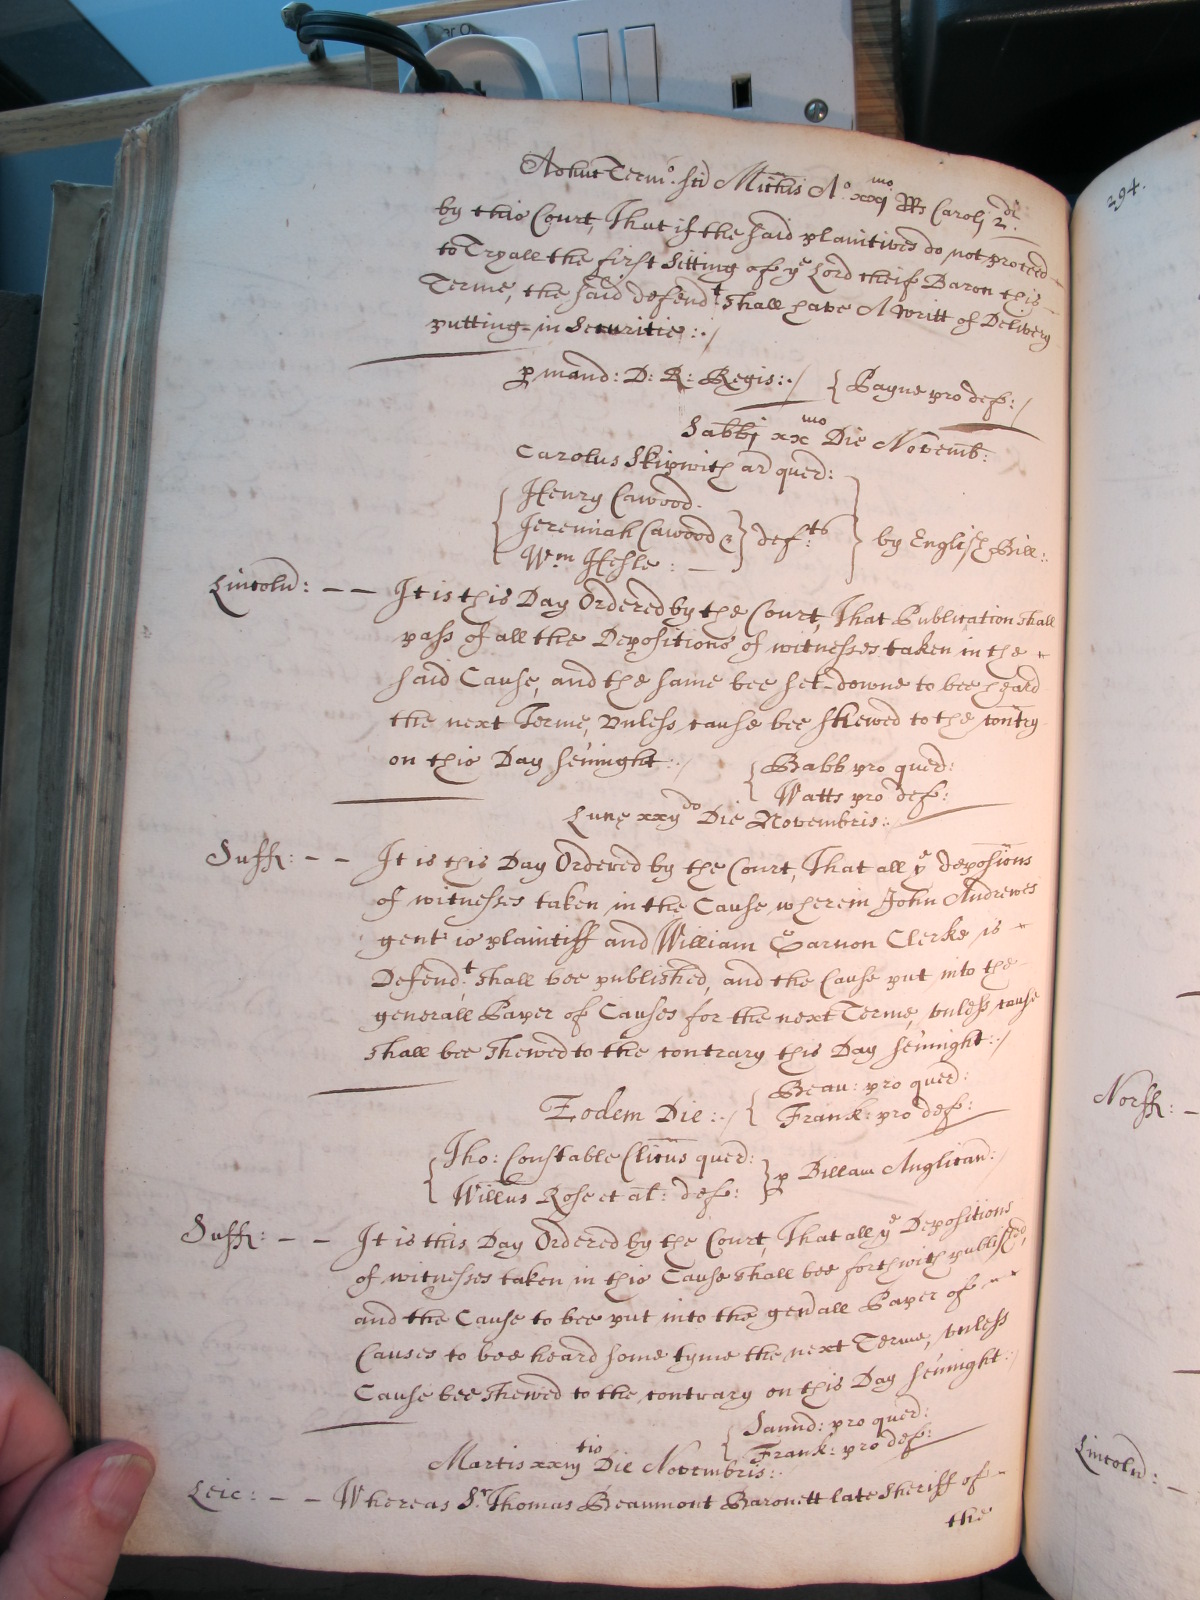 Adhuc Term:o sci Mich̄is A:o xxj mo R̄s Caroli 2.di
by this Court, That if the said plaintives do not proceed
to Tryall the first Sitting of ye Lord cheif Baron this
Terme, the said defend:t shall have A Writt of Delivery
putting in Securitie :./
p mand: D: R: Regis:./ { Payne pro def:/
Sabbi xx mo Die Novemb:
Carolus Skipwith ar quer:
Henry Cawood.
Jeremiah Cawood & } def:ts } by English Bill:
Wm Hesle : —
Lincoln: — — It is this Day Ordered by the Court, That Publication shall
pass of all the Depositions of witnesses taken in the
said Cause, and the same bee set-downe to bee heard
the next Terme, vnless cause bee shewed to the contry
on this Day Sen̄night :./
{ Babb pro quer:
Watts pro def:
Lune xxij do Die Novembris:
Suff: — — It is this Day Ordered by the Court, That all ye deposic̄ons
of witnesses taken in the Cause wherein John Andrewes
gent is plaintiff and William Clerke is
Defend:t shall bee published, and the Cause put into the
generall Paper of Causes for the next Terme, vnless cause
shall bee shewed to the contrary this Day Sen̄night:./
Eodem Die :./ { Beau: pro quer:
Frank: pro def:
Tho: Constable Cl̄icus quer:
Willus Rose et al: def: } p Billam Anglican:/
Suff: — — It is this Day Ordered by the Court, That all ye Depositions
of witnesses taken in this Cause shall bee forthwith published,
and the Cause to bee put into the gen̄all Paper of
Causes to bee heard some tyme the next Terme, vnless
Cause bee shewed to the contrary on this Day Sen̄night :
{ Saund: pro quer:
Frank: pro def:
Martis xxiij tio Die Novembris:
Leic: — — Whereas Sr. Thomas Beaumont Baronett late Sheriff of
the
294.
Norff: —
Lincoln: —